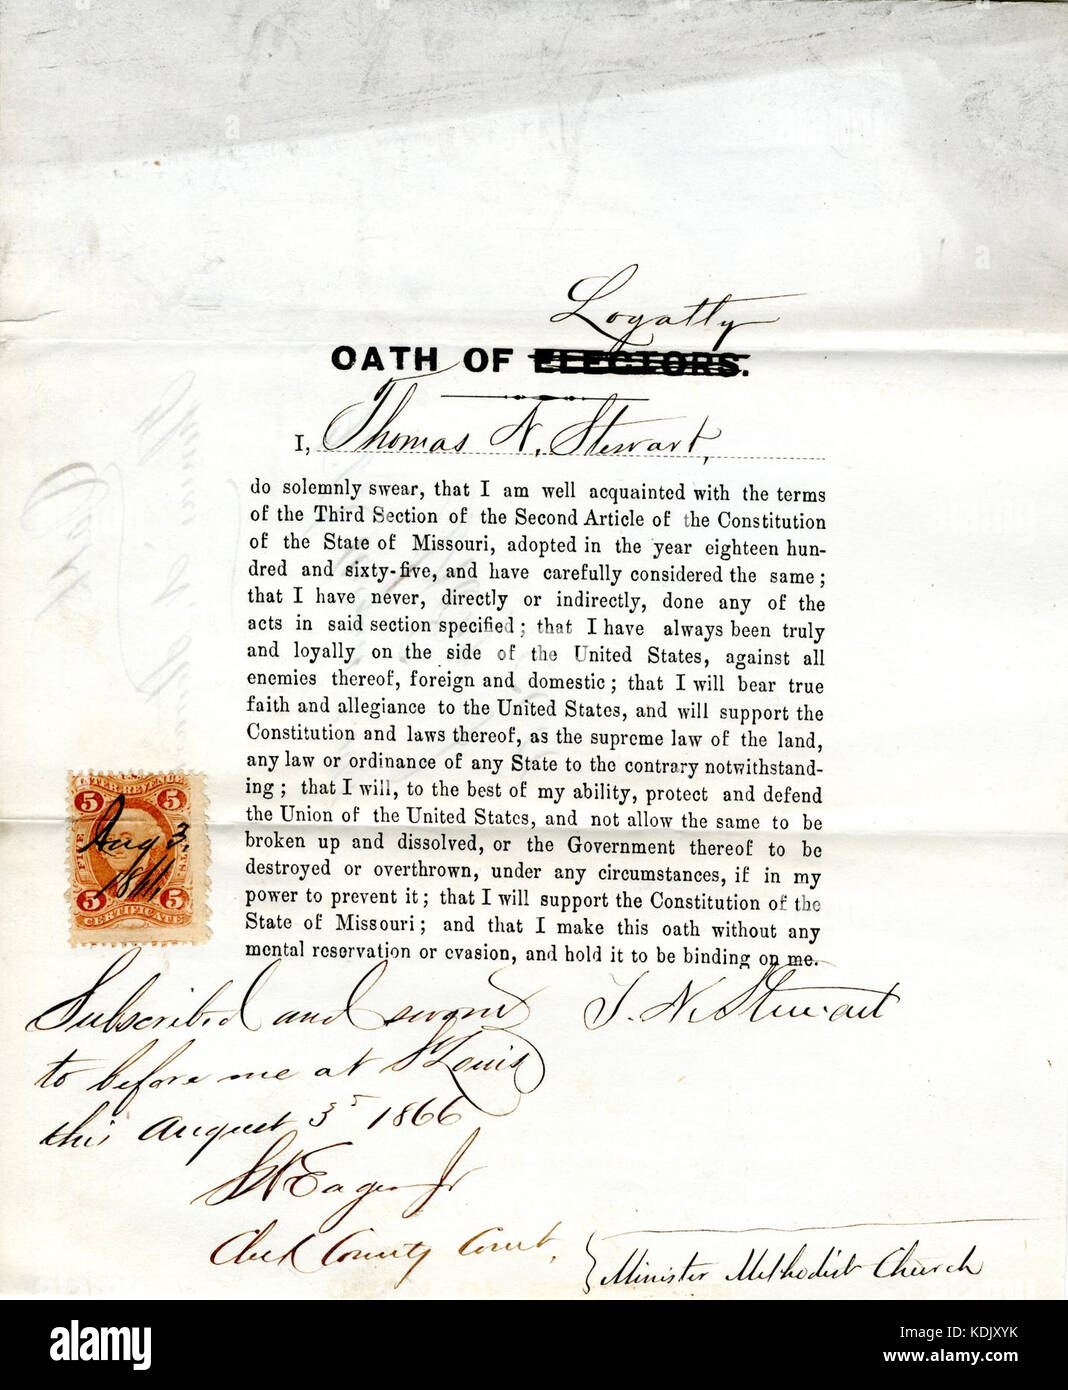 Loyalty
OATH OF ELECTORS.
I, Thomas N. Stewart,
do solemnly swear, that I am well acquainted with the terms
of the Third Section of the Second Article of the Constitution
of the State of Missouri, adopted in the year eighteen hun-
dred and sixty-five, and have carefully considered the same;
that I have never, directly or indirectly, done any of the
acts in said section specified; that I have always been truly
and loyally on the side of the United States, against all
enemies thereof, foreign and domestic; that I will bear true
faith and allegiance to the United States, and will support the
Constitution and laws thereof, as the supreme law of the land,
any law or ordinance of any State to the contrary notwithstand-
ing; that I will, to the best of my ability, protect and defend
the Union of the United States, and not allow the same to be
broken up and dissolved, or the Government thereof to be
destroyed or overthrown, under any circumstances, if in my
power to prevent it; that I will support the Constitution of the
State of Missouri; and that I make this oath without any
mental reservation or evasion, and hold it to be binding on me.
T. N. Stewart
INTER. REVENUE
5 5
FIVE CENTS
Aug 3,
1866
5 5
CERTIFICATE
Subscribed and sworn
to before me at St Louis
this August 3d 1866
Eager Jr
Clerk County Court,
Minister Methodist Church
alamy
Image ID: KDJXYK
www.alamy.com